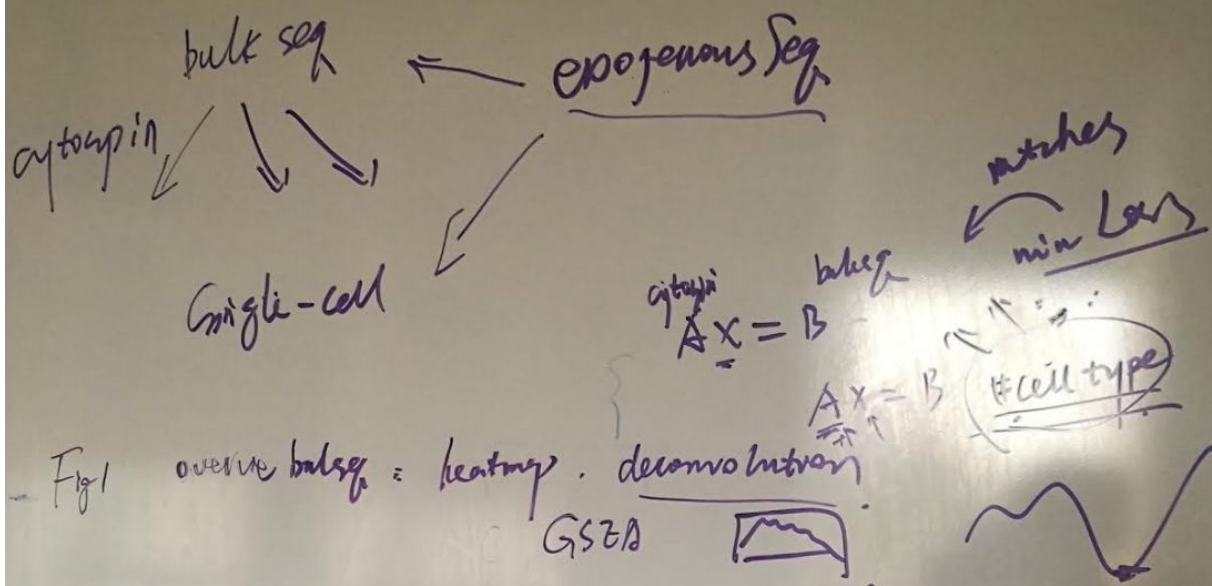 bulk seq
exogenous Seq
cytospin
matches
min Loss
Single-cell
cytospin
bulkseq
AX = B
AX = B
#cell type
Fig1 bulkseq : heatmap . deconvolution
GSEA